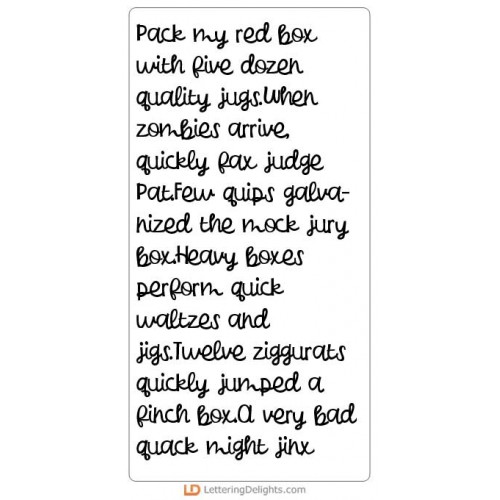 Pack my red box
with five dozen
quality jugs.When
zombies arrive,
quickly fax judge
Pat.Few quips galva-
nized the mock jury
box.Heavy boxes
perform quick
waltzes and
jigs.Twelve ziggurats
quickly jumped a
finch box.A very bad
quack might jinx
LD LetteringDelights.com